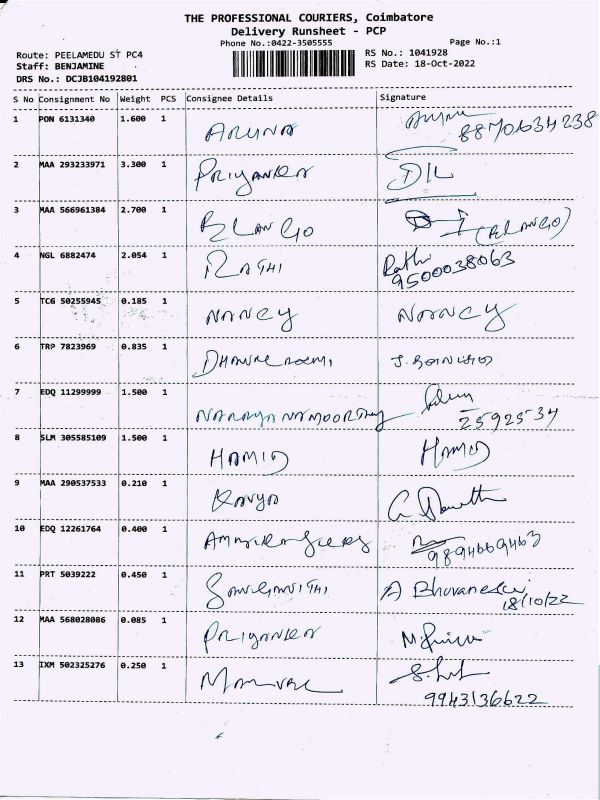 THE PROFESSIONAL COURIERS, Coimbatore
Delivery Runsheet - PCP
Phone No.:0422-3505555 Page No.:1
Route: PEELAMEDU ST PC4 RS No.: 1041928
Staff: BENJAMINE RS Date: 18-Oct-2022
DRS No.: DCJB104192801
S No Consignment No Weight PCS Consignee Details Signature
1 PON 6131340 1.600 1 ARUNA
8870634238
2 MAA 293233971 3.300 1 PRIYANKA
3 MAA 566961384 2.700 1 ELANGO (ELANGO)
4 NGL 6882474 2.054 1 RATHI Rathi
9500038063
5 TCG 50255945 0.185 1 NANCY NANCY
6 TRP 7823969 0.835 1
7 EDQ 11299999 1.500 1 NARAYANAMOORTHY
2592534
8 SLM 305585109 1.500 1 HAMID HAMID
9 MAA 290537533 0.210 1 KAVYA
10 EDQ 12261764 0.400 1
9894669463
11 PRT 5039222 0.450 1 A Bhuvaneswari
18/10/22
12 MAA 568028086 0.085 1 PRIYANKA
13 IXM 502325276 0.250 1
9943136622